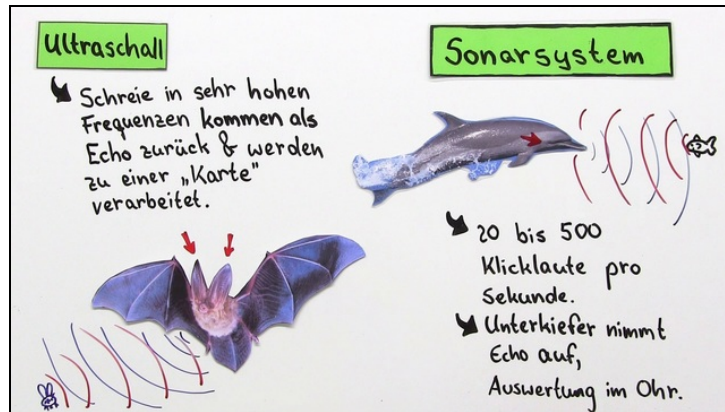 Ultraschall
Schreie in sehr hohen
Frequenzen kommen als
Echo zurück & werden
zu einer „Karte"
verarbeitet.
Sonarsystem
20 bis 500
Klicklaute pro
Sekunde.
Unterkiefer nimmt
Echo auf,
Auswertung im Ohr.